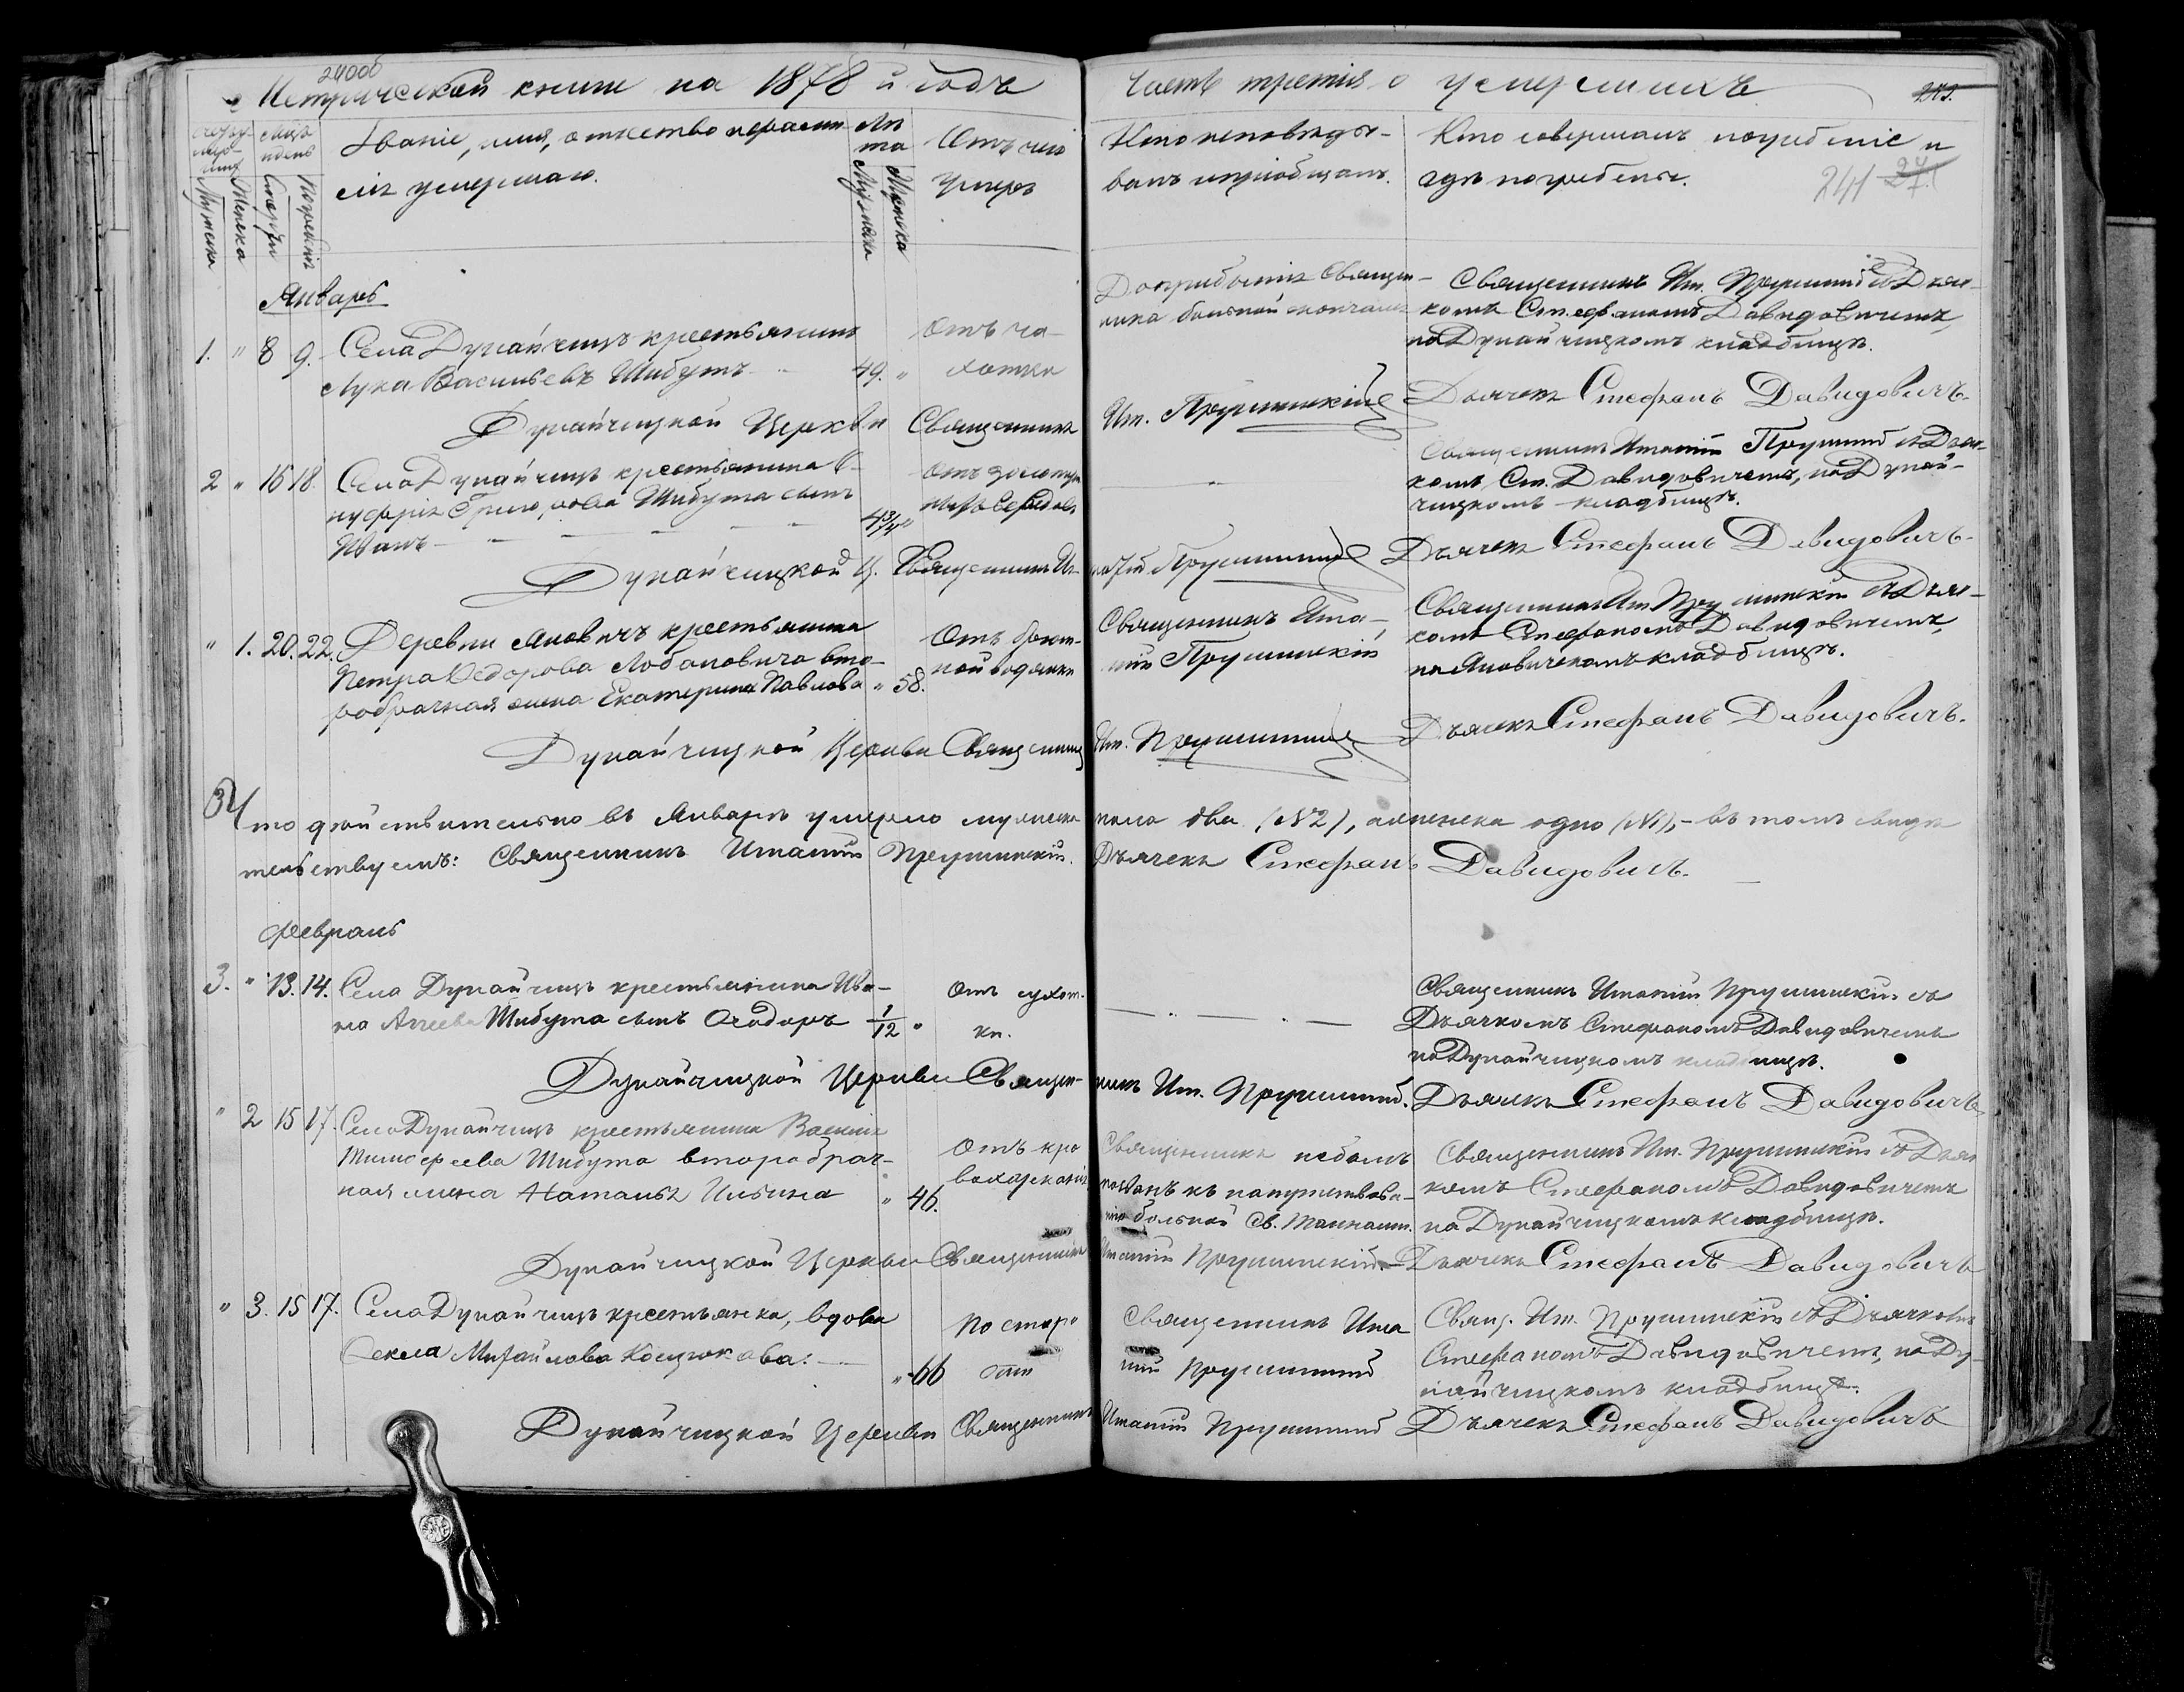 240об
Метрической книги на 1878й годъ
Часть третія о умершихъ
Званіе, имя, отчество и фами-
лія умершаго.
Лѣ
та
Отъ чего
умеръ
Мужеска
Женска
Мужеска
Женска
Кто исповѣды-
валъ и пріобщалъ.
Кто совершалъ погребеніе и
гдѣ погребены.
241
Январь
1. " 8 9. Села Дунайчицъ крестьянинъ
Лука Васильевъ Шибутъ 49. "
Отъ ча-
хотки
До прибытія Священ-
ника больной скончался
Священникъ Иг. Прушинскій съ Дьяч-
комъ Стефаномъ Давидовичемъ,
на Дунайчицкомъ кладбищѣ.
Дунайчицкой Церкви Священникъ
Иг. Прушинскій
Дьячекъ Стефанъ Давидовичъ.
2 " 16 18. Села Дунайчицъ крестьянина О-
нуфрія Григорова Шибута сынъ
Иванъ 4 3/4 "
Священникъ Игнатій Прушинскій съ Дьяч-
комъ Ст. Давидовичемъ, на Дунай-
чицкомъ кладбищѣ.
Дунайчицкой Ц. Священникъ Иг-
натій Прушинскій
Дьячекъ Стефанъ Давидовичъ.
" 1. 20. 22. Деревни Яновичъ крестьянина
Петра Ѳедорова Лобановича вто-
робрачная жена Екатерина Павлова " 58.
Отъ брюш-
ной водянки
Священникъ Игна-
тій Прушинскій
Священникъ Иг. Прушинскій съ Дьяч-
комъ Стефаномъ Давидовичемъ,
на Яновичскомъ кладбищѣ.
Дунайчицкой Церкви Священникъ
Иг. Прушинскій
Дьячекъ Стефанъ Давидовичъ.
Что дѣйствительно въ Январѣ умерло мужеска пола два (№2), а женска одно (№1), - въ томъ свидѣ
тельствуемъ: Священникъ Игнатій Прушинскій. Дьячекъ Стефанъ Давидовичъ.
Февраль
3. " 13. 14. Села Дунайчицъ крестьянина Ива-
на Шибута сынъ Ѳеодоръ 1/12 "
Отъ сухот-
ки.
Священникъ Игнатій Прушинскій съ
Дьячкомъ Стефаномъ Давидовичемъ
на Дунайчицкомъ кладбищѣ.
Дунайчицкой Церкви Священ-
никъ Иг. Прушинскій. Дьячекъ Стефанъ Давидовичъ.
" 2 15 17. Села Дунайчицъ крестьянина Василія
Тимофеева Шибута второбрач-
ная жена Наталья Ильина " 46.
Отъ кро
вохарканія
Священникъ не былъ
позванъ къ напутствова-
нію больной Св. Тайнами.
Священникъ Иг. Прушинскій съ Дьяч
комъ Стефаномъ Давидовичемъ
на Дунайчицкомъ кладбищѣ.
Дунайчицкой Церкви Священникъ
Игнатій Прушинскій. Дьячекъ Стефанъ Давидовичъ
" 3. 15 17. Села Дунайчицъ крестьянка, вдова
Ѳекла Михайлова Косцюкова. " 66
По старо
сти
Священникъ Игна
тій Прушинскій
Свящ. Иг. Прушинскій съ Дьячкомъ
Стефаномъ Давидовичемъ, на Ду-
найчицкомъ кладбищѣ.
Дунайчицкой Церкви Священникъ
Игнатій Прушинскій Дьячекъ Стефанъ Давидовичъ